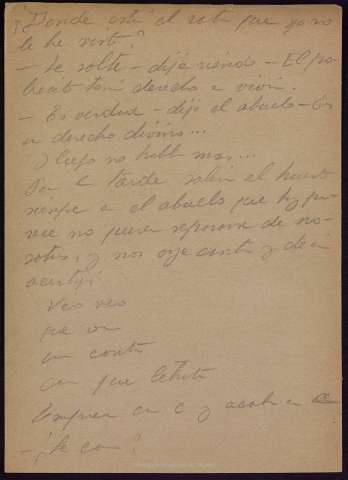 ¿Donde está el rata que yo no
le he visto?
— Le solté — dije riendo — El po-
brecito tení derecho a vivir.
— Es verdad — dijo el abuelo — Es
un derecho divino...
Y luego no habl mas...
Por la tarde salen el huerto
siempre a el abuelo que hoy pa-
rece no querer separarse de no-
sotros, y nos oye cantar y decir
acertij
Veo veo
que ve
un cont
con que letrita
Empieza en c y acaba en
— ¿Se can?